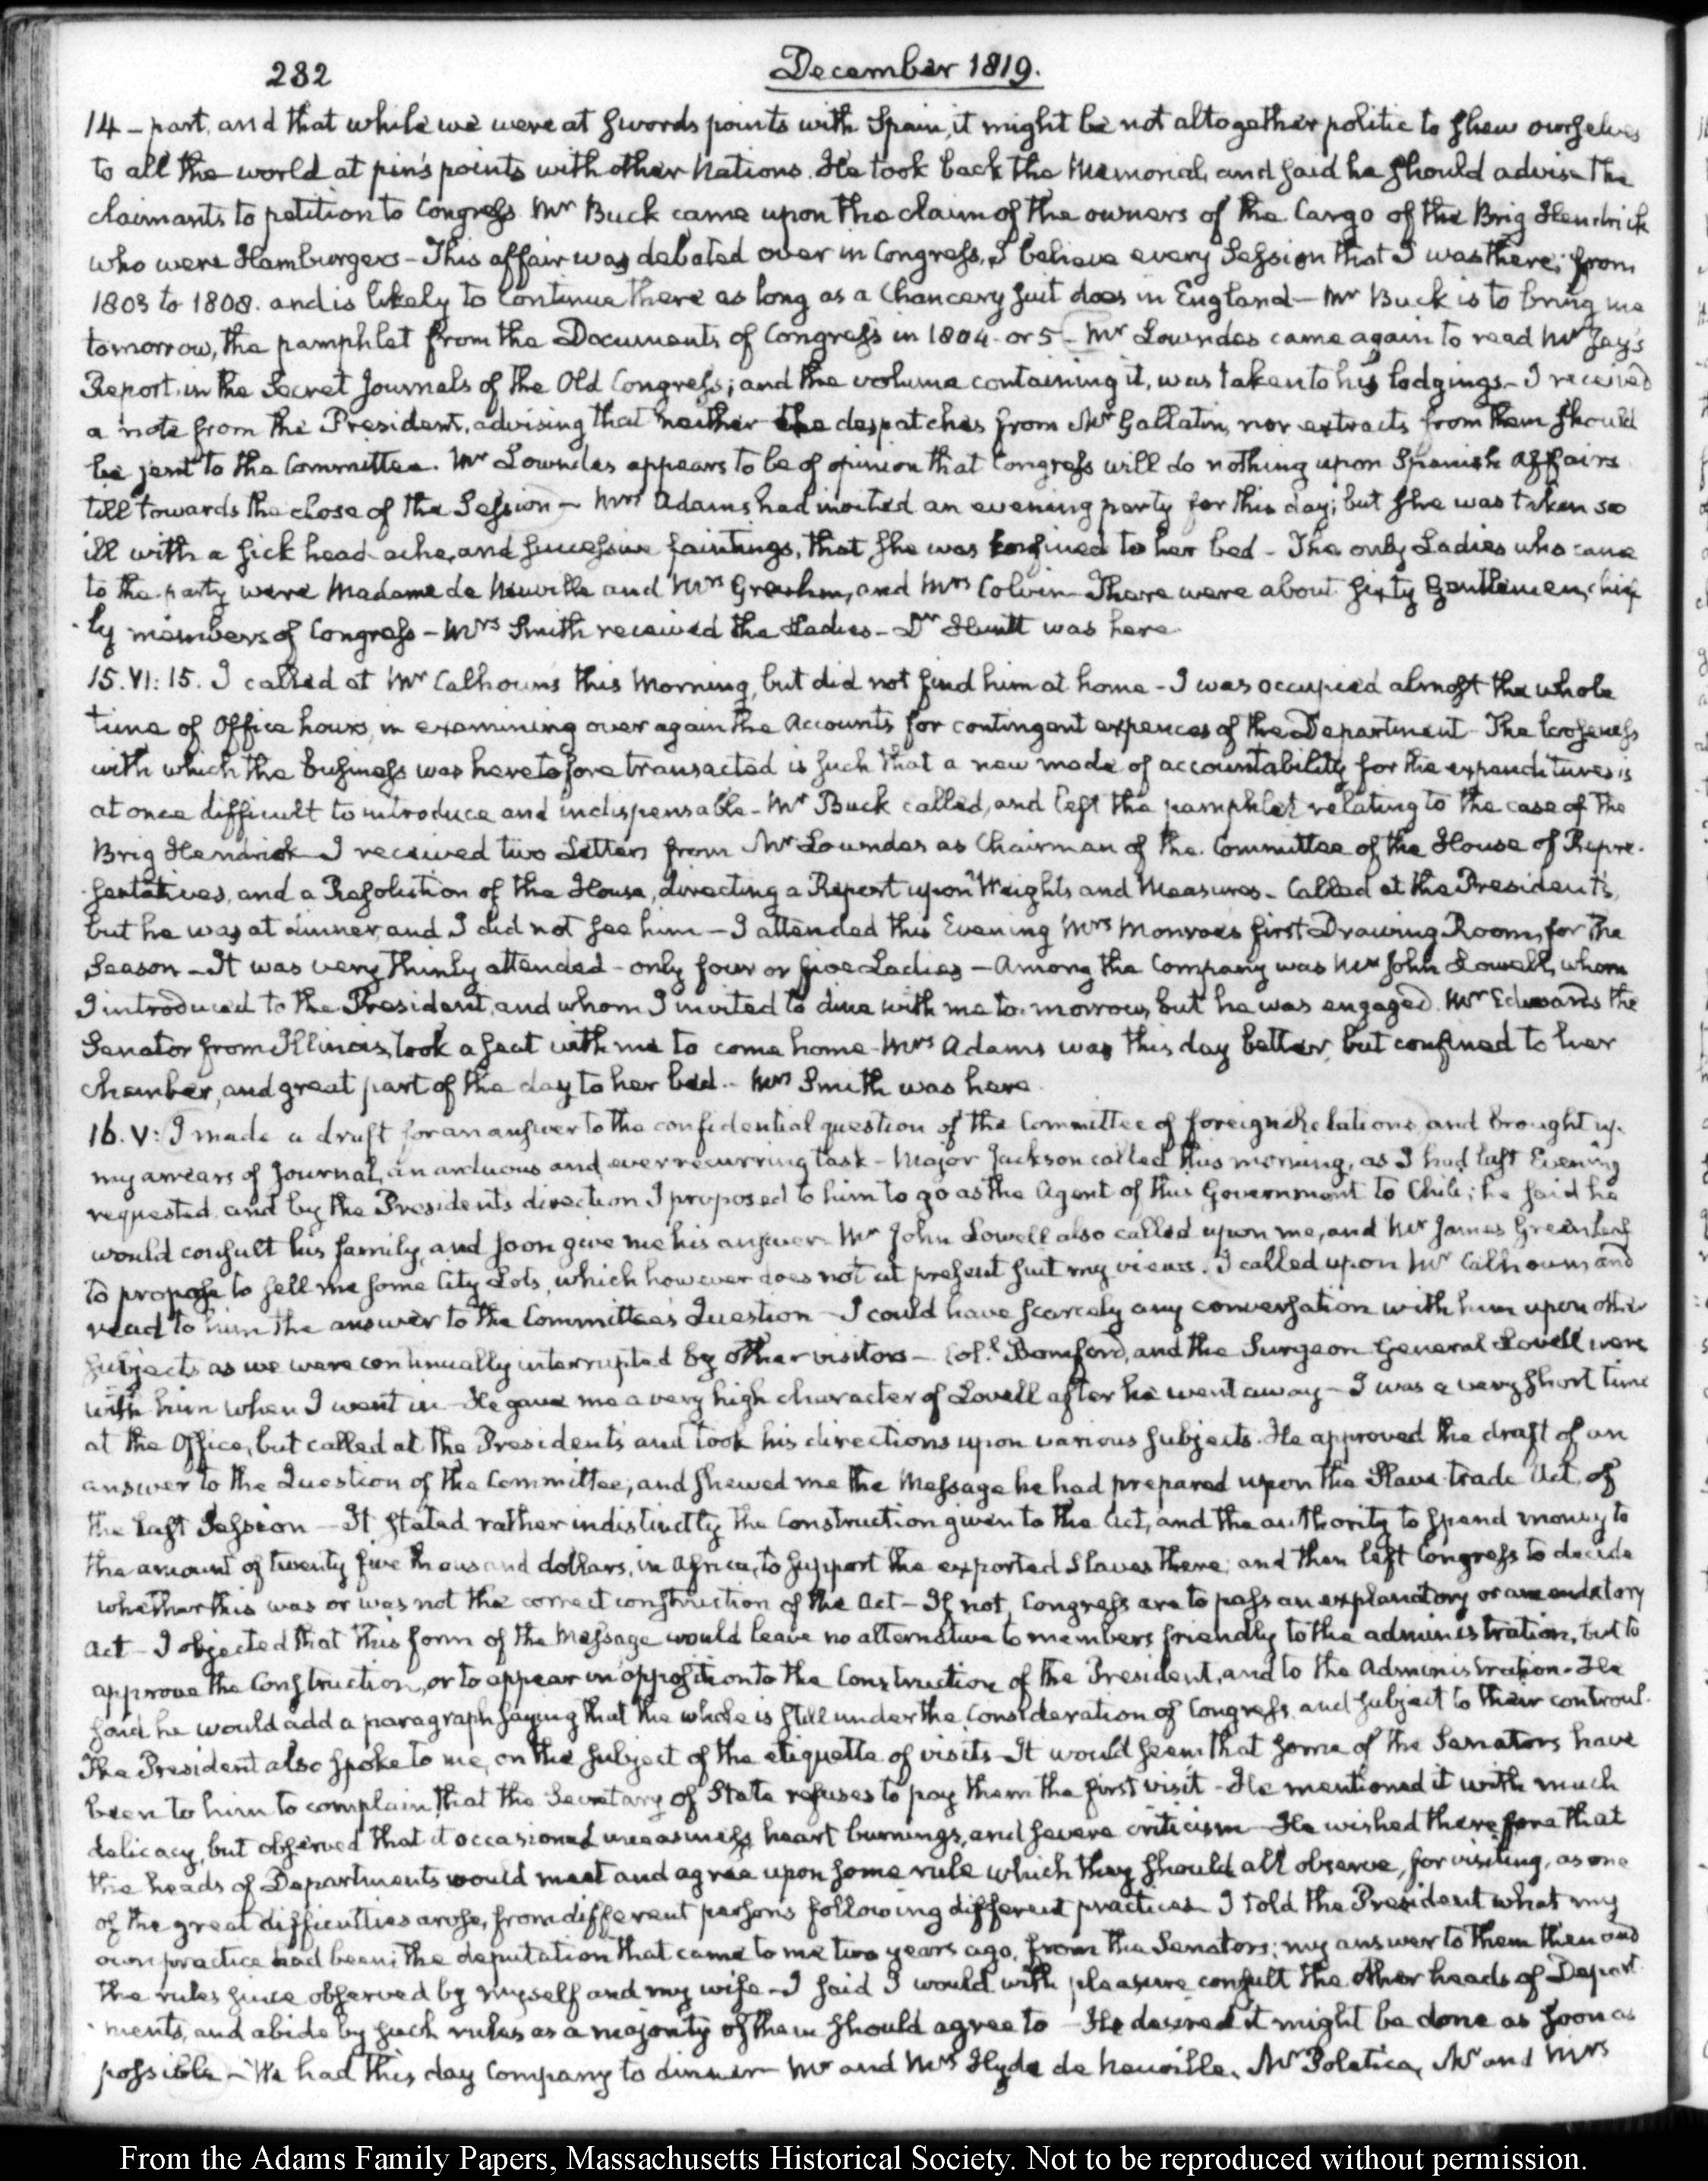 282
December 1819.
14 - part, and that while we were at swords points with Spain, it might be not altogether politic to shew ourselves
to all the world at pin's points with other Nations. He took back the Memorial, and said he should advise the
claimants to petition to Congress. Mr Buck came upon the claim of the owners of the Cargo of the Brig Hendrick
who were Hamburgers - This affair was debated over in Congress, I believe every Session that I was there; from
1803 to 1808. and is likely to continue there as long as a Chancery suit does in England - Mr Buck is to bring me
tomorrow, the pamphlet from the Documents of Congress in 1804. or 5 - Mr Lowndes came again to read Mr Jay's
Report, in the Secret Journals of the Old Congress; and the volume containing it, was taken to his lodgings - I received
a note from the President, advising that neither the despatches from Mr Gallatin, nor extracts from them should
be sent to the Committee. Mr Lowndes appears to be of opinion that Congress will do nothing upon Spanish Affairs
till towards the close of the Session - Mrs Adams had invited an evening party for this day; but she was taken so
ill with a sick head-ache, and successive faintings, that she was confined to her bed - The only Ladies who came
to the party were Madame de Neuville and Mrs Graham, and Mrs Colvin - There were about sixty Gentlemen, chief
-ly members of Congress - Mrs Smith received the Ladies - Dr Huntt was here.
15. VI: 15. I called at Mr Calhoun's this Morning, but did not find him at home - I was occupied almost the whole
time of Office hours, in examining over again the Accounts for contingent expences of the Department - The looseness
with which the business was heretofore transacted is such that a new mode of accountability for the expenditures is
at once difficult to introduce and indispensable - Mr Buck called, and left the pamphlet relating to the case of the
Brig Hendrick - I received two Letters from Mr Lowndes as Chairman of the Committee of the House of Repre-
-sentatives, and a Resolution of the House, directing a Report upon Weights and Measures - Called at the President's,
but he was at dinner, and I did not see him - I attended this Evening Mrs Monroe's first Drawing Room, for the
Season - It was very thinly attended - only four or five Ladies - Among the Company was Mr John Lowell, whom
I introduced to the President, and whom I invited to dine with me to-morrow, but he was engaged. Mr Edwards the
Senator from Illinois, took a seat with me to come home - Mrs Adams was this day better, but confined to her
chamber, and great part of the day to her bed - Mrs Smith was here.
16. V: I made a draft for an answer to the confidential question of the Committee of foreign Relations, and brought up
my arrears of Journal, an arduous and ever recurring task - Major Jackson called this morning, as I had last Evening
requested, and by the President's direction I proposed to him to go as the Agent of this Government to Chili; he said he
would consult his family, and soon give me his answer - Mr John Lowell also called upon me, and Mr James Greenleaf
to propose to sell me some City Lots, which however does not at present suit my views. I called upon Mr Calhoun and
read to him the answer to the Committee's Question - I could have scarcely any conversation with him upon other
subjects as we were continually interrupted by other visitors - Col.l Bomford, and the Surgeon General Lovell were
with him when I went in - He gave me a very high character of Lovell after he went away - I was a very short time
at the Office, but called at the President's and took his directions upon various subjects. He approved the draft of an
answer to the Question of the Committee; and shewed me the Message he had prepared upon the Slave-trade Act, of
the last Session - It stated rather indistinctly the Construction given to the Act, and the authority to spend money to
the amount of twenty five thousand dollars, in Africa, to support the exported Slaves there; and then left Congress to decide
whether this was or was not the correct construction of the Act - If not, Congress are to pass an explanatory or amendatory
Act - I objected that this form of the Message would leave no alternative to members friendly to the administration, but to
approve the Construction, or to appear in opposition to the Construction of the President, and to the Administration - He
said he would add a paragraph saying that the whole is still under the Consideration of Congress, and subject to their controul.
The President also spoke to me, on the subject of the etiquette of visits - It would seem that some of the Senators have
been to him to complain that the Secretary of State refuses to pay them the first visit - He mentioned it with much
delicacy, but observed that it occasioned uneasiness, heart burnings, and severe criticism - He wished therefore that
the heads of Departments would meet and agree upon some rule which they should all observe, for visiting, as one
of the great difficulties arose, from different persons following different practices - I told the President what my
own practice had been; the deputation that came to me two years ago, from the Senators; my answer to them then and
the rules since observed by myself and my wife - I said I would with pleasure consult the other heads of Depart-
-ments, and abide by such rules as a majority of them should agree to - He desired it might be done as soon as
possible - We had this day Company to dinner - Mr and Mrs Hyde de Neuville, Mr Poletica, Mr and Mrs
From the Adams Family Papers, Massachusetts Historical Society. Not to be reproduced without permission.